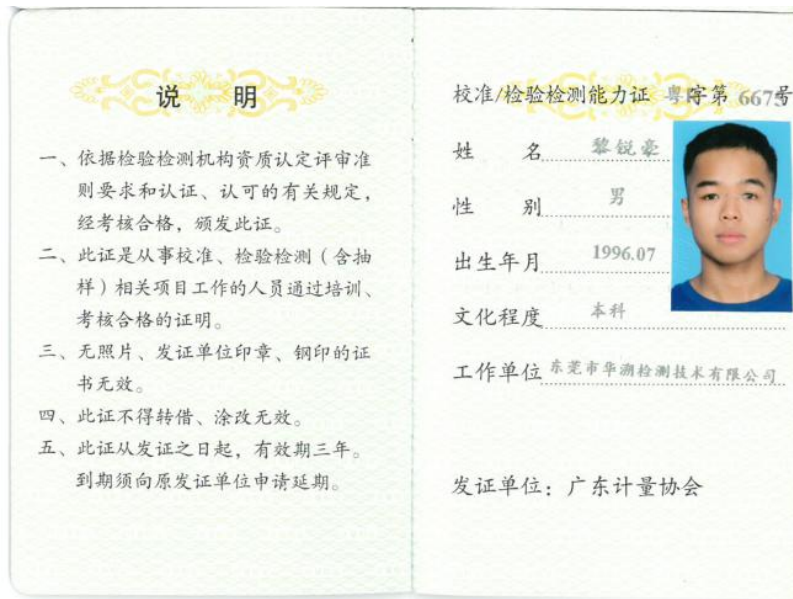 说 明
一、依据检验检测机构资质认定评审准
则要求和认证、认可的有关规定，
经考核合格，颁发此证。
二、此证是从事校准、检验检测（含抽
样）相关项目工作的人员通过培训、
考核合格的证明。
三、无照片、发证单位印章、钢印的证
书无效。
四、此证不得转借、涂改无效。
五、此证从发证之日起，有效期三年。
到期须向原发证单位申请延期。
校准/检验检测能力证 粤字第 6675号
姓 名 黎锐豪
性 别 男
出生年月 1996.07
文化程度 本科
工作单位 东莞市华溯检测技术有限公司
发证单位：广东计量协会